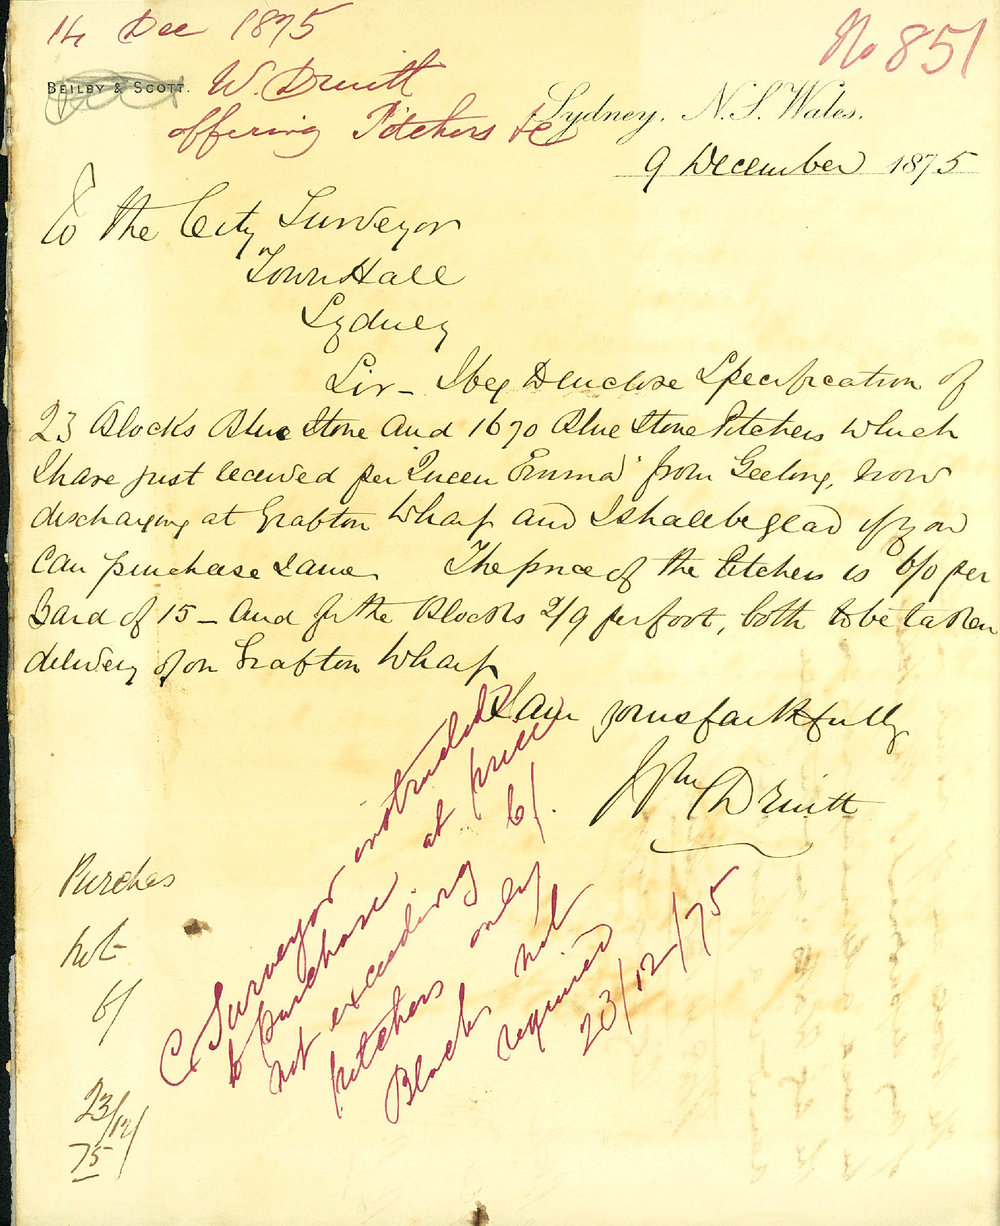 14 Dec 1875
No 851
BEILBY & SCOTT.
W. Druitt
offering Pitchers &c
Sydney, N.S. Wales.
9 December 1875
To the City Surveyor
Town Hall
Sydney
Sir - I beg to enclose Specification of
23 Blocks Blue Stone and 1670 Blue Stone Pitchers which
I have just received per "Queen Emma" from Geelong, now
discharging at Grafton Wharf and I shall be glad if you
can purchase same The price of the Pitchers is 6/0 per
Yard of 15 - and for the Blocks 2/9 per foot, both to be taken
delivery of on Grafton Wharf
I am yours faithfully
Wm Druitt
C. Surveyor instructed
to purchase at price
not exceeding 6/.
pitchers only
Blocks not
required
23/12/75
Purchas
not
6/
23/12/
75